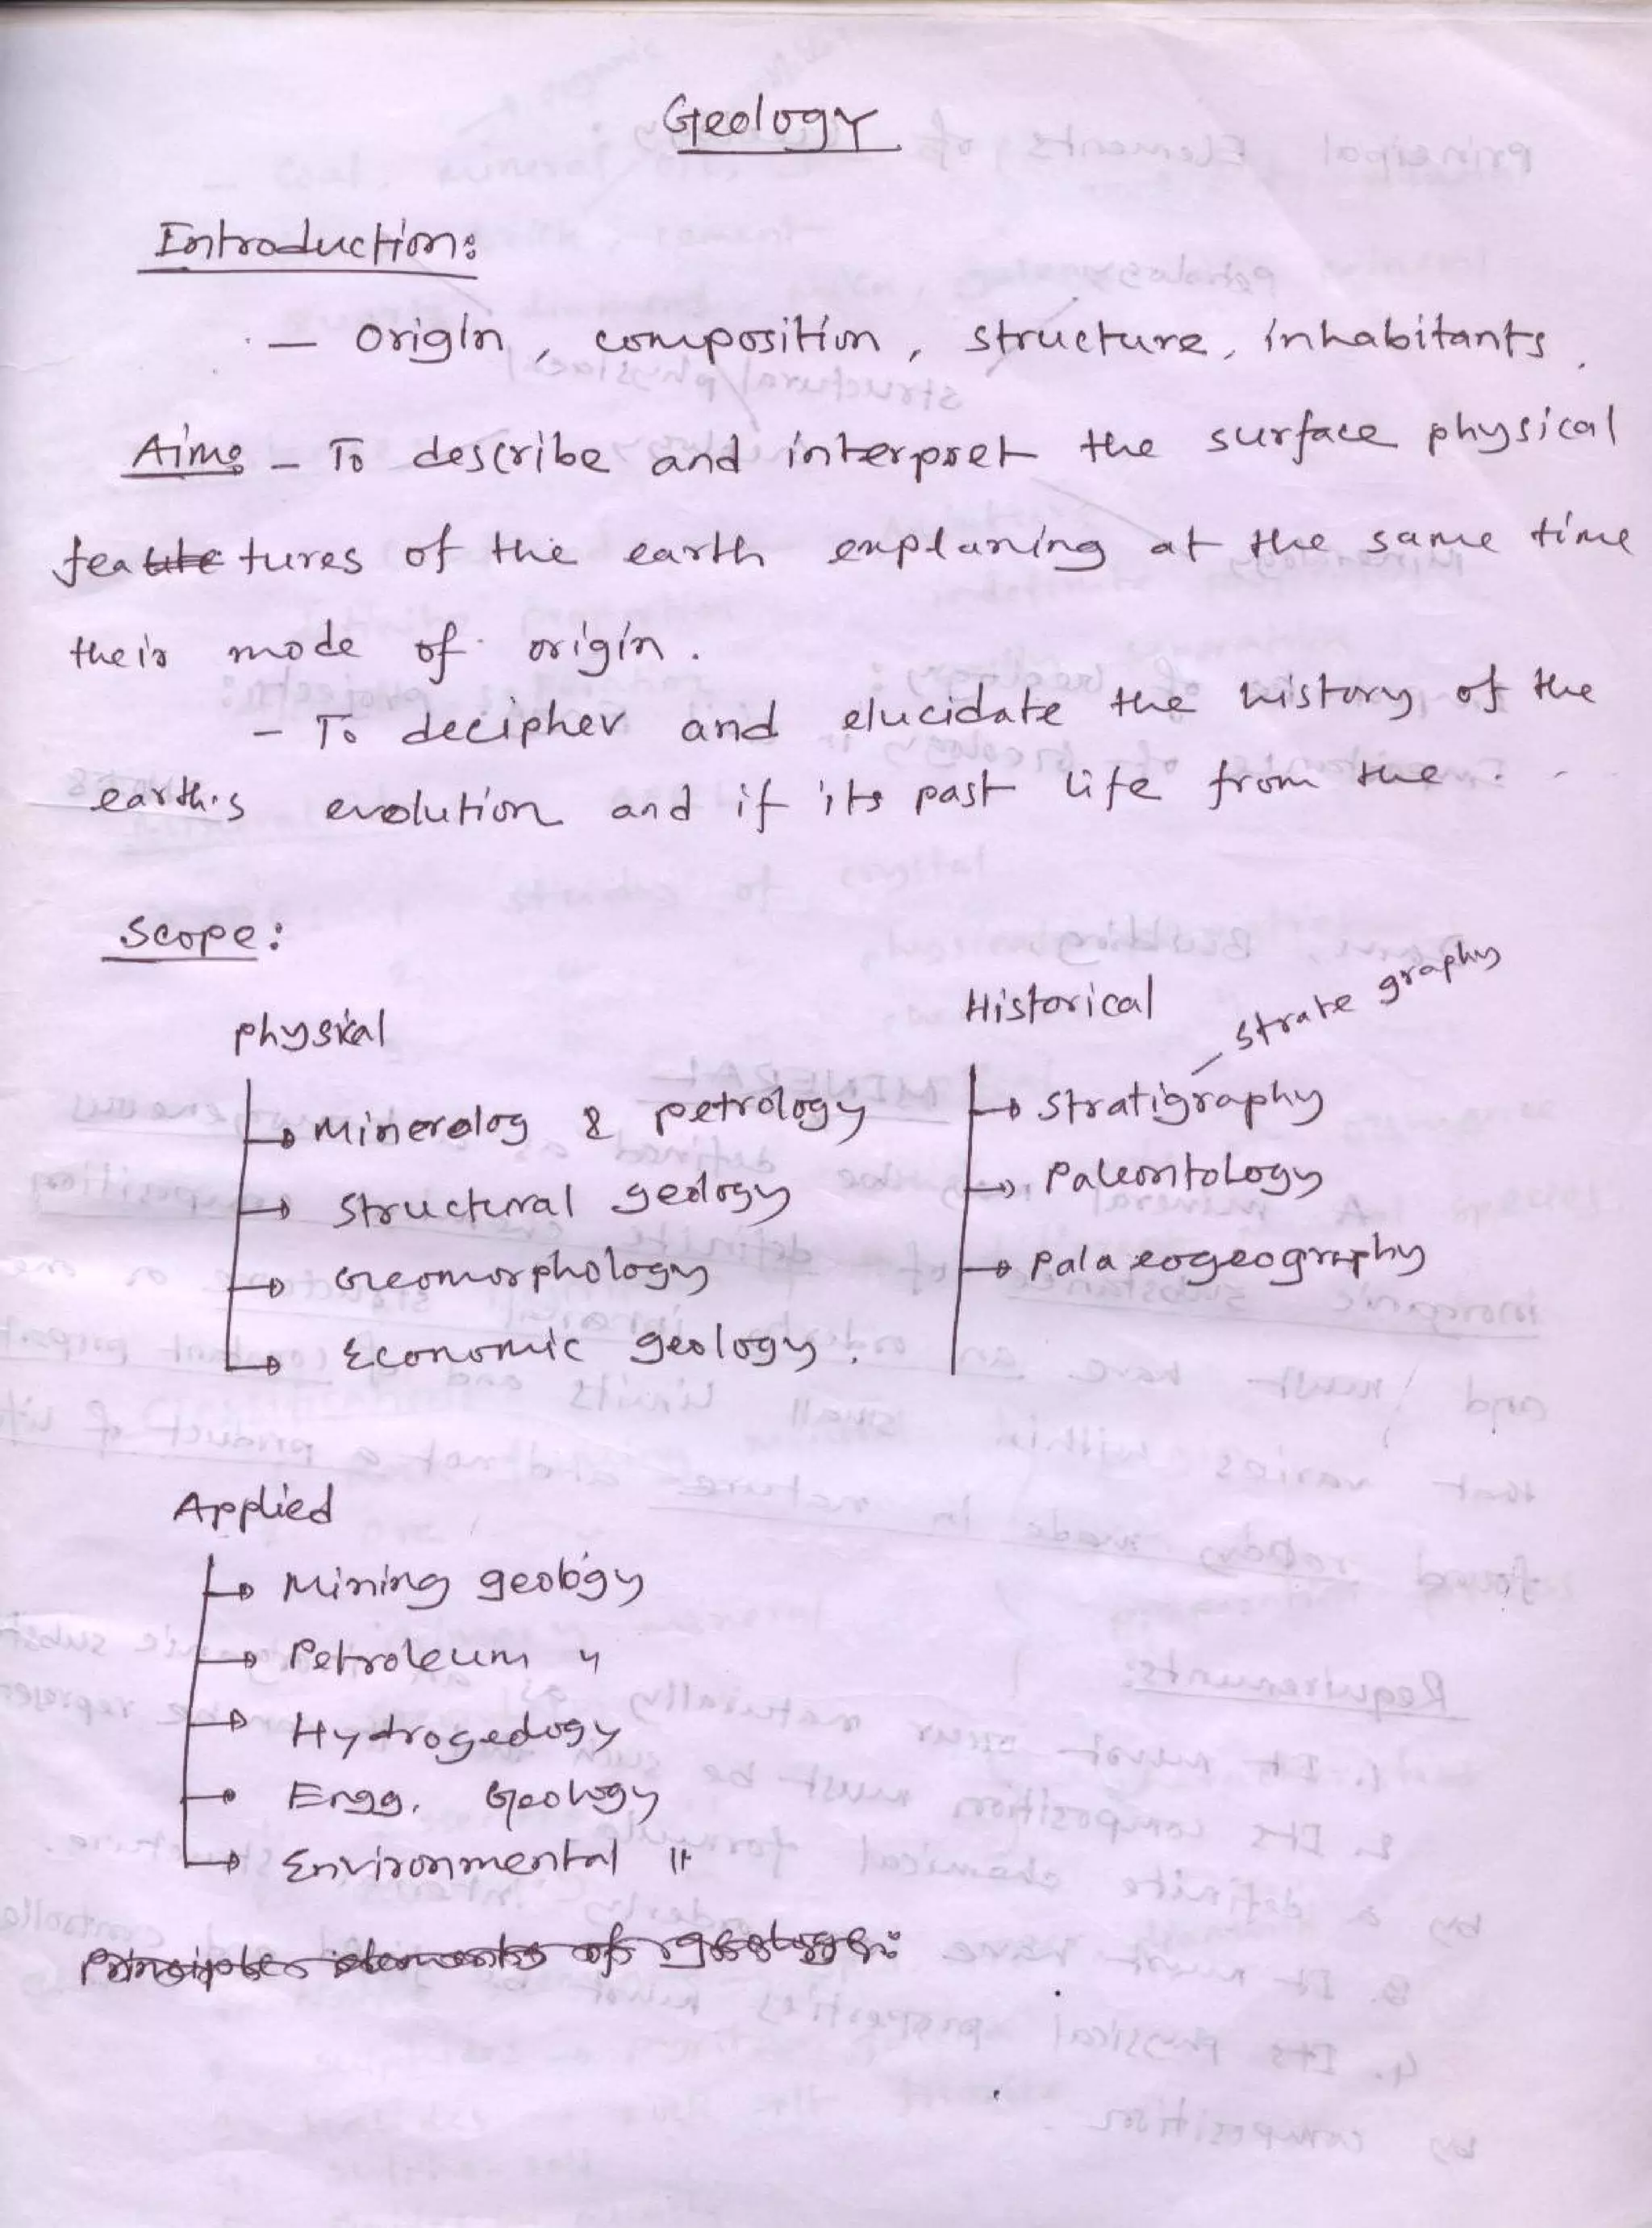 Geology
Introduction:
– Origin, composition, structure, inhabitants.
Aim: – To describe and interpret the surface physical
features of the earth explaning at the same time
their mode of origin.
– To decipher and elucidate the history of the
earth's evolution and if its past life from the
Scope:
Physical
Minerolog & petrology
Structural geology
Geomorphology
Economic geology.
Historical
strate graphy
Stratigraphy
Paleontology
Palaeogeography
Applied
Mining geology
Petroleum "
Hydrogeology
Engg. Geology
Environmental "
Principles elements of geology: